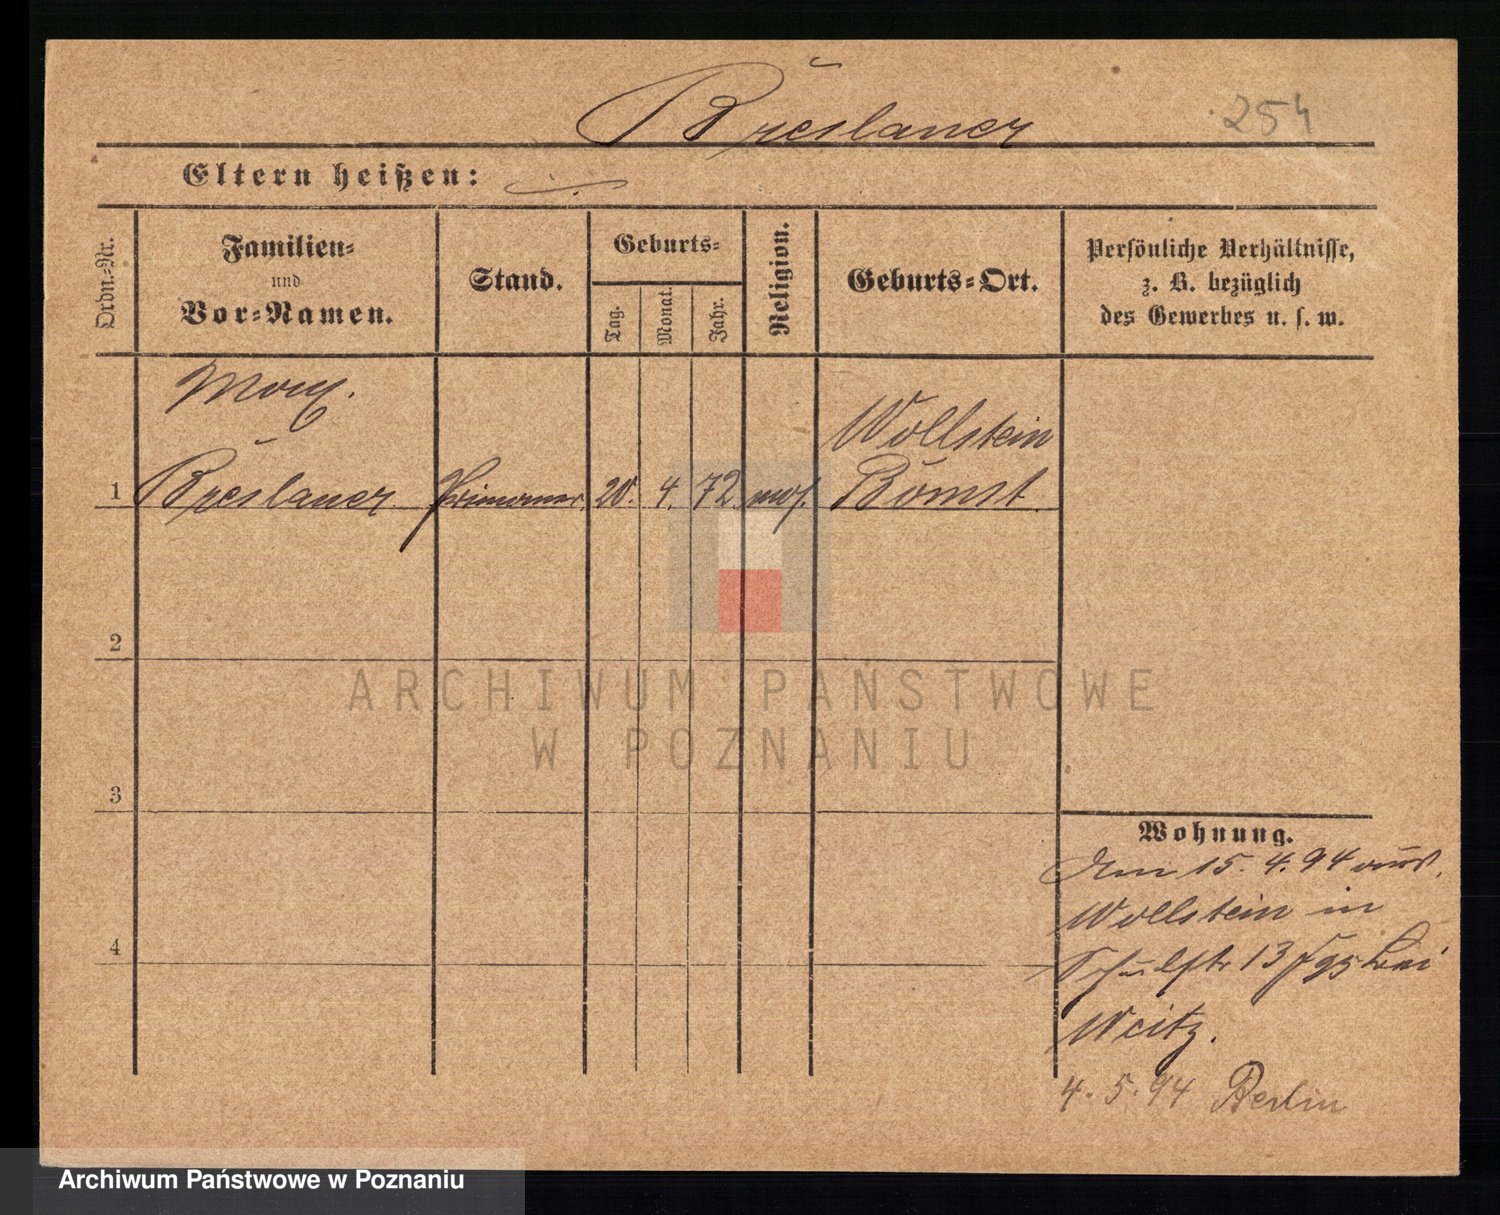 Breslauer
254
Eltern heißen:
Ordn.-Nr.
Familien-
und
Vor-Namen.
Stand.
Geburts-
Tag.
Monat.
Jahr.
Religion.
Geburts-Ort.
Persönliche Verhältnisse,
z. B. bezüglich
des Gewerbes u. s. w.
1
Breslauer
Primaner
20. 4. 72. mos.
Wollstein
Bomst
2
3
4
ARCHIWUM PAŃSTWOWE
W POZNANIU
Wohnung.
15. 4. 94 aus
Wollstein in
Schulstr 13 bei
Weitz.
4. 5. 94 Berlin
Archiwum Państwowe w Poznaniu